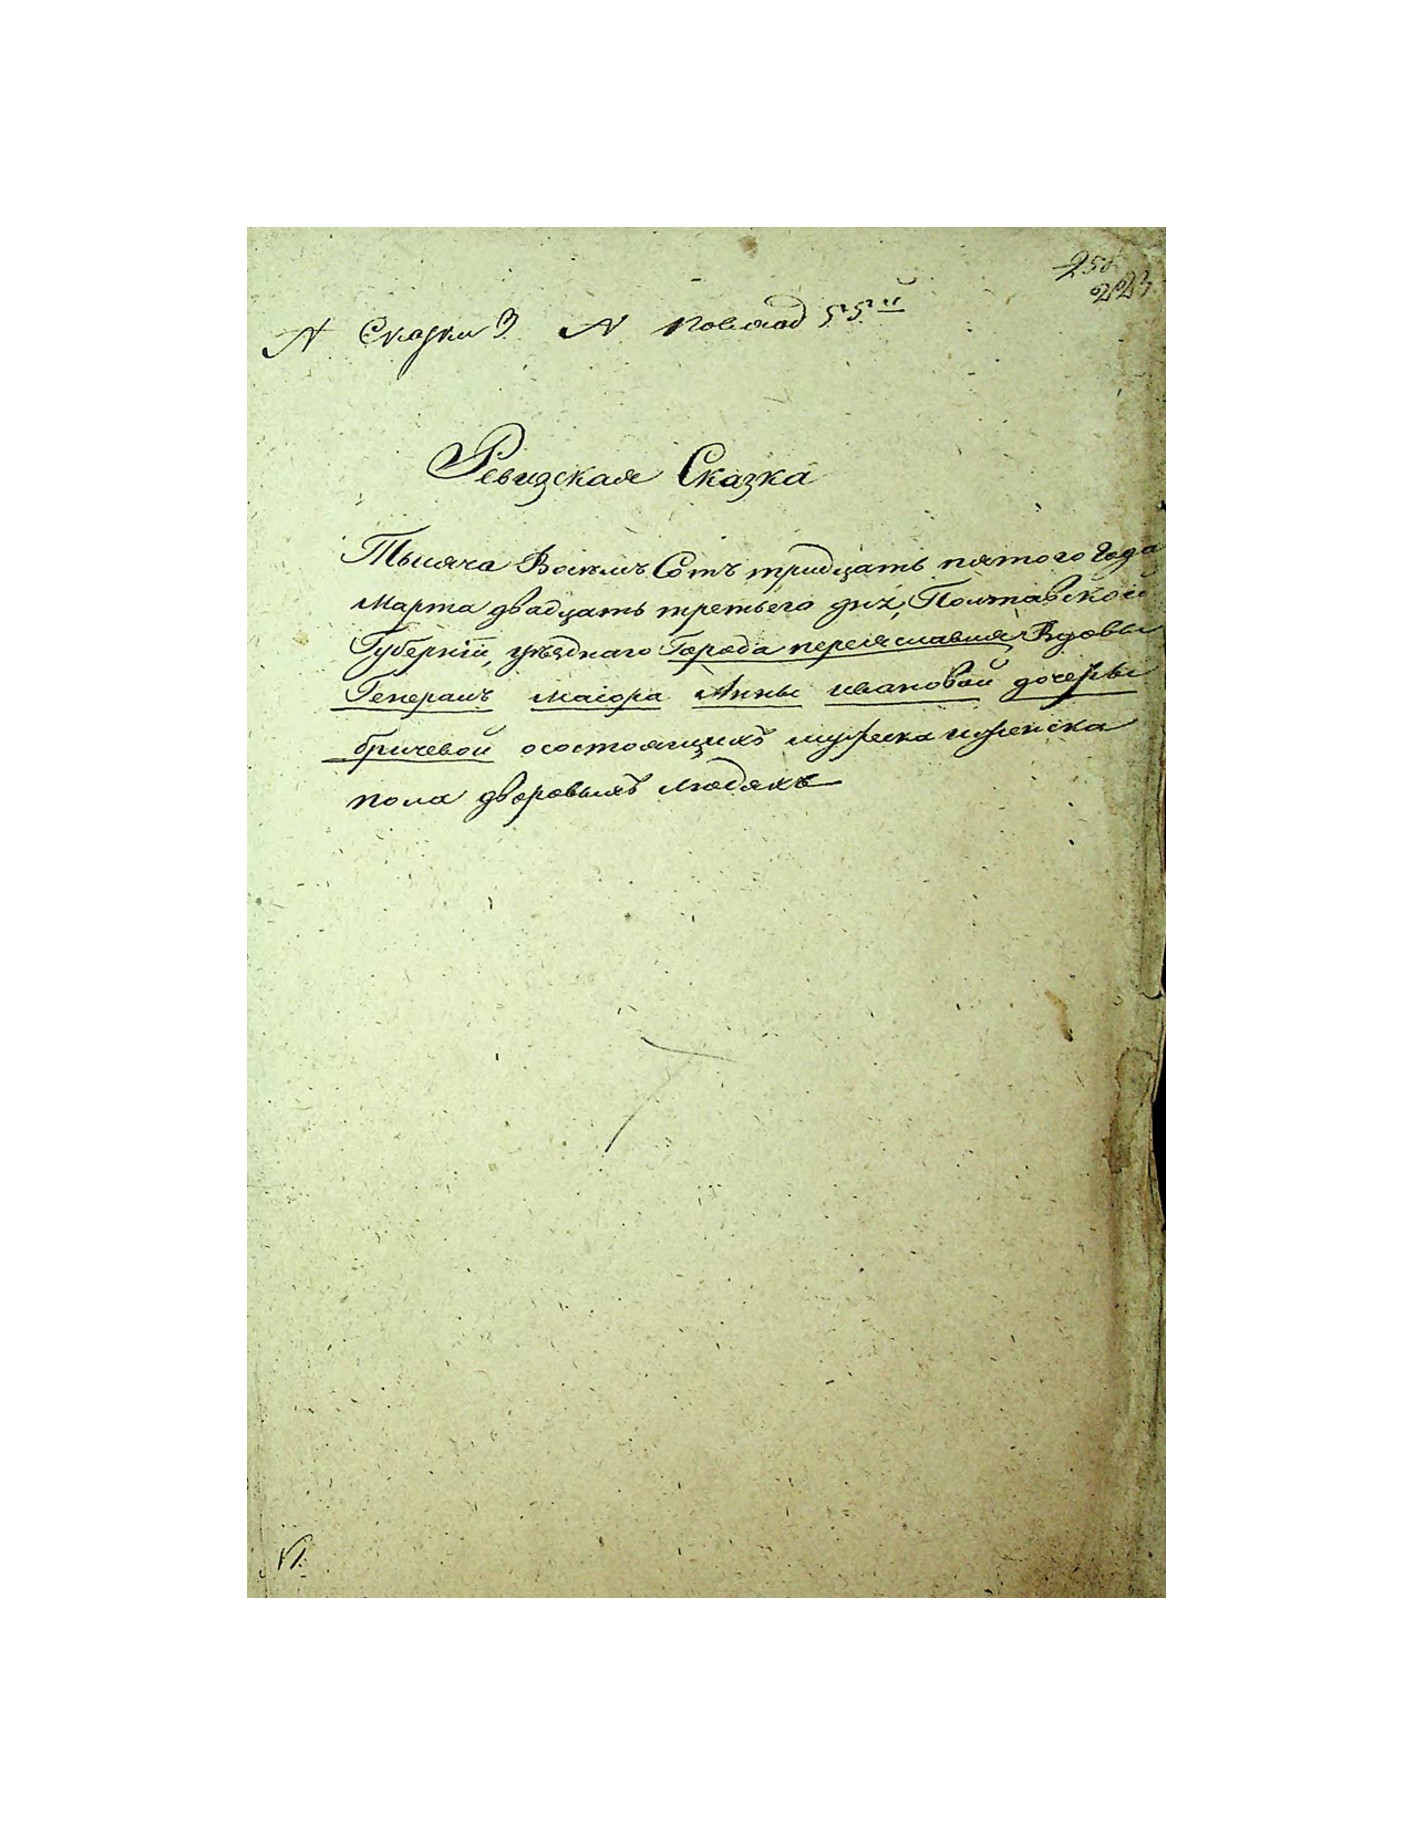 223
N Сказки 3 N 55й
Ревизская Сказка
Тысяча Восемъ Сотъ тридцать пятого Года
Марта двадцать третьего дня, Полтавской
Губерніи, уѣзднаго Города переяславля Вдовы
Генералъ маіора Анны ивановой дочеры
бричевой осостоящихъ мужеска иженска
пола дворовыхъ людяхъ